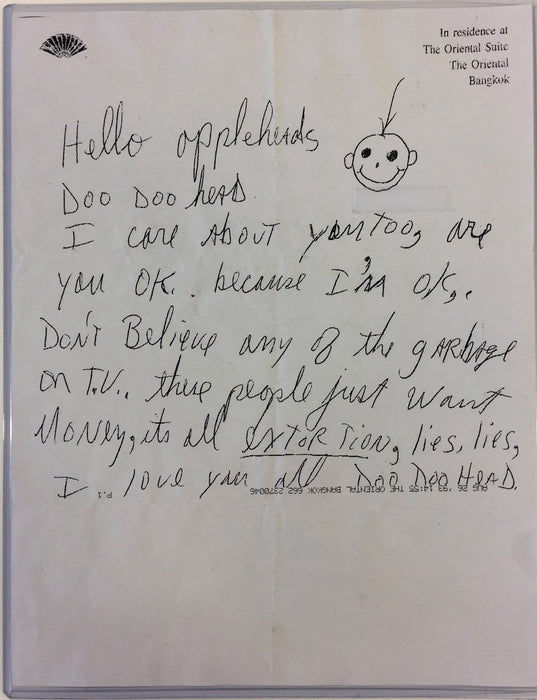 In residence at
The Oriental Suite
The Oriental
Bangkok
Hello appleheads
Doo Doo head.
I care ABOUT you too, are
you OK.. because I'm ok,.
DON'T Believe any of the gARbage
on T.V.. these people just want
Money, its all extorTion, lies, lies,
I love you all Doo Doo HeAD.
AUG 26 '93 14:55 THE ORIENTAL BANGKOK 662 2370046 P.1